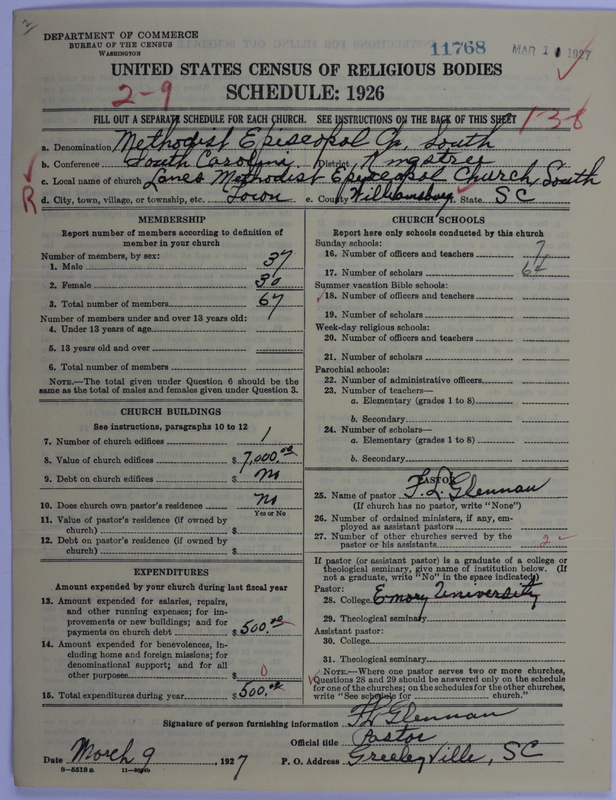 DEPARTMENT OF COMMERCE
BUREAU OF THE CENSUS
WASHINGTON
11768
MAR 1 1927
UNITED STATES CENSUS OF RELIGIOUS BODIES
SCHEDULE: 1926
2-9
138
FILL OUT A SEPARATE SCHEDULE FOR EACH CHURCH. SEE INSTRUCTIONS ON THE BACK OF THIS SHEET
a. Denomination Methodist Episcopal Ch, South
b. Conference South Carolina District Kingstree
c. Local name of church Lanes Methodist Episcopal Church, South
R
d. City, town, village, or township, etc. Town e. County Williamsburg f. State SC
MEMBERSHIP
Report number of members according to definition of member in your church
Number of members, by sex:
1. Male 37
2. Female 30
3. Total number of members 67
Number of members under and over 13 years old:
4. Under 13 years of age
5. 13 years old and over
6. Total number of members
NOTE.—The total given under Question 6 should be the
same as the total of males and females given under Question 3.
CHURCH BUILDINGS
See instructions, paragraphs 10 to 12
7. Number of church edifices 1
8. Value of church edifices $ 7,000.00
9. Debt on church edifices $ no
10. Does church own pastor's residence no
Yes or No
11. Value of pastor's residence (if owned by
church) $
12. Debt on pastor's residence (if owned by
church) $
EXPENDITURES
Amount expended by your church during last fiscal year
13. Amount expended for salaries, repairs,
and other running expenses; for im-
provements or new buildings; and for
payments on church debt $ 500.00
14. Amount expended for benevolences, in-
cluding home and foreign missions; for
denominational support; and for all
other purposes $ 0
15. Total expenditures during year $ 500.00
CHURCH SCHOOLS
Report here only schools conducted by this church
Sunday schools:
16. Number of officers and teachers 7
17. Number of scholars 64
Summer vacation Bible schools:
18. Number of officers and teachers
19. Number of scholars
Week-day religious schools:
20. Number of officers and teachers
21. Number of scholars
Parochial schools:
22. Number of administrative officers
23. Number of teachers—
a. Elementary (grades 1 to 8)
b. Secondary
24. Number of scholars—
a. Elementary (grades 1 to 8)
b. Secondary
PASTOR
25. Name of pastor F. L. Glennan
(If church has no pastor, write "None")
26. Number of ordained ministers, if any, em-
ployed as assistant pastors
27. Number of other churches served by the
pastor or his assistants 2
If pastor (or assistant pastor) is a graduate of a college or
theological seminary, give name of institution below. (If
not a graduate, write "No" in the space indicated)
Pastor:
28. College Emory University
29. Theological seminary
Assistant pastor:
30. College
31. Theological seminary
NOTE.—Where one pastor serves two or more churches,
Questions 28 and 29 should be answered only on the schedule
for one of the churches; on the schedules for the other churches,
write "See schedule for church."
Signature of person furnishing information F L Glennan
Official title Pastor
Date March 9, 1927 P. O. Address Greeleyville, SC
8-5518 a